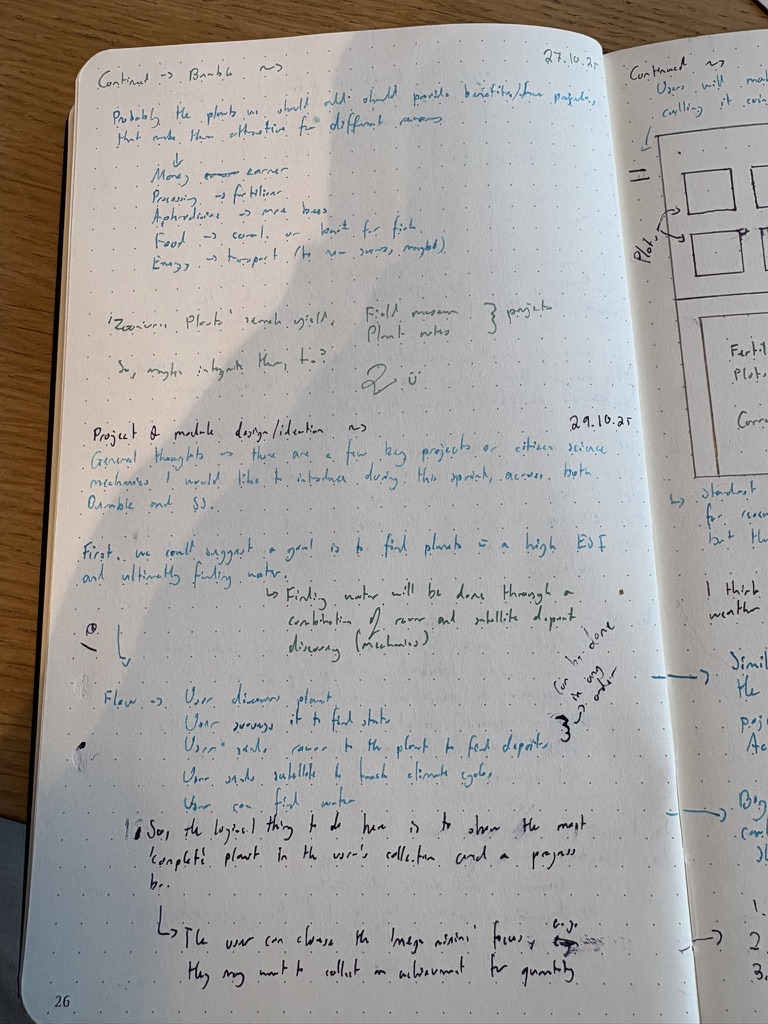 Continued → Bumble ~>
27.10.25
Probably the plants we should add should provide benefits/ projects,
that make them attractive for different reasons
↓
Money earner
Processing → fertiliser
Aphrodisiac → more bees
Food → or bait for fish
Energy → transport (to new , maybe)
'Zooniverse Plants' search yields Field museum
Plant notes } projects
So, maybe integrate them, too?
2 ü
Project & module design/ideation ~>
29.10.25
General thoughts → there are a few key projects or citizen science
mechanics I would like to introduce during this sprint, across both
Bumble and SS.
First, we could suggest a goal is to find planets = a high ESI
and ultimately finding water.
↳ Finding water will be done through a
combination of rover and satellite deposit
discovery (mechanics)
Flow → User discovers planet
User surveys it to find stats
User sends rover to the planet to find deposits
User sends satellite to track climate cycles
User can find water
can be done
in any
order
So, the logical thing to do here is to show the most
'complete' planet in the user's collection and a progress
b..
↳ The user can choose the 'mega mission' focus, e.g.
they may want to collect an achievement for quantity
26
Continued ~>
Users will
calling it
=
Plots
Fertil
Plots
↳ stardust
for
but th
I think
weather
→ Simil
the
proj
Ac
→
→ 1.
2.
3.